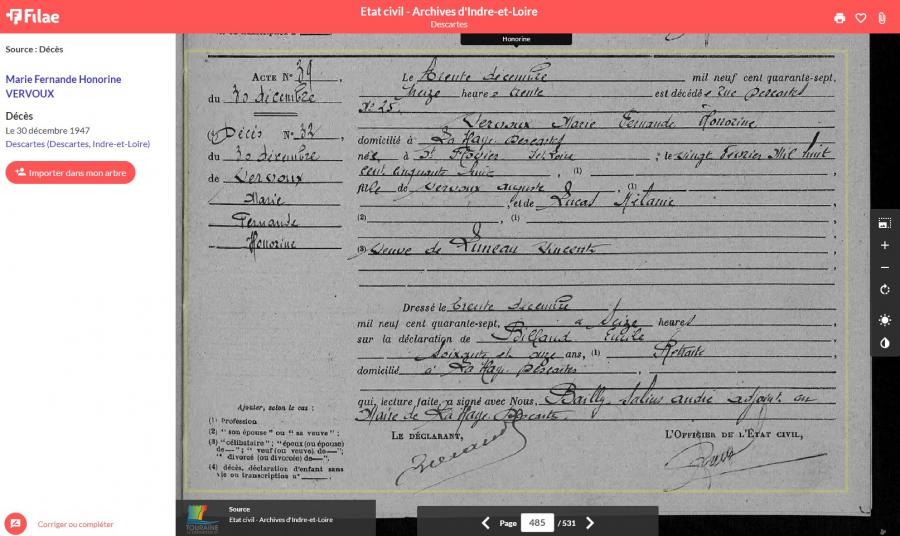 Filae
Etat civil - Archives d'Indre-et-Loire
Descartes
Source : Décès
Marie Fernande Honorine
VERVOUX
Décès
Le 30 décembre 1947
Descartes (Descartes, Indre-et-Loire)
Importer dans mon arbre
Corriger ou compléter
Honorine
ACTE N° 34
du 30 décembre
(4) Décès N° 32
du 30 décembre
de Vervoux
Marie
Fernande
Honorine
Ajouter, selon le cas :
(1) Profession
(2) " son épouse " ou " sa veuve " ;
(3) " célibataire " ; " époux (ou épouse)
de — " ; " veuf (ou veuve) de — " ;
" divorcé (ou divorcée) de — ".
(4) décès, déclaration d'enfant sans
vie ou transcription n°
Le trente décembre mil neuf cent quarante-sept,
Seize heures trente est décédée Rue Descartes
N° 25.
Vervoux Marie Fernande Honorine
domicilié à La Haye Descartes
née à St Flovier ; le vingt Février Mil huit
cent cinquante huit , (1)
fille de Vervoux auguste , (1)
, et de Lucas Mélanie
(2) , (1)
(3) Veuve de Limeau Vincent
Dressé le trente décembre
mil neuf cent quarante-sept, à Seize heures
sur la déclaration de
Soixante et onze ans, (1) Retraité
domicilié à La Haye Descartes
qui, lecture faite, a signé avec Nous, Bailly Salins andré adjoint au
Maire de La Haye Descartes.
LE DÉCLARANT,
L'OFFICIER DE L'ÉTAT CIVIL,
TOURAINE
Source
Etat civil - Archives d'Indre-et-Loire
Page 485 / 531